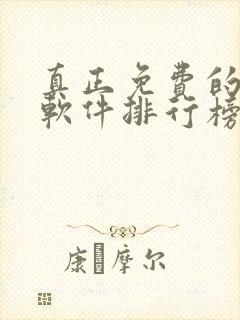 真正免費的
軟件排行榜
康 摩尔